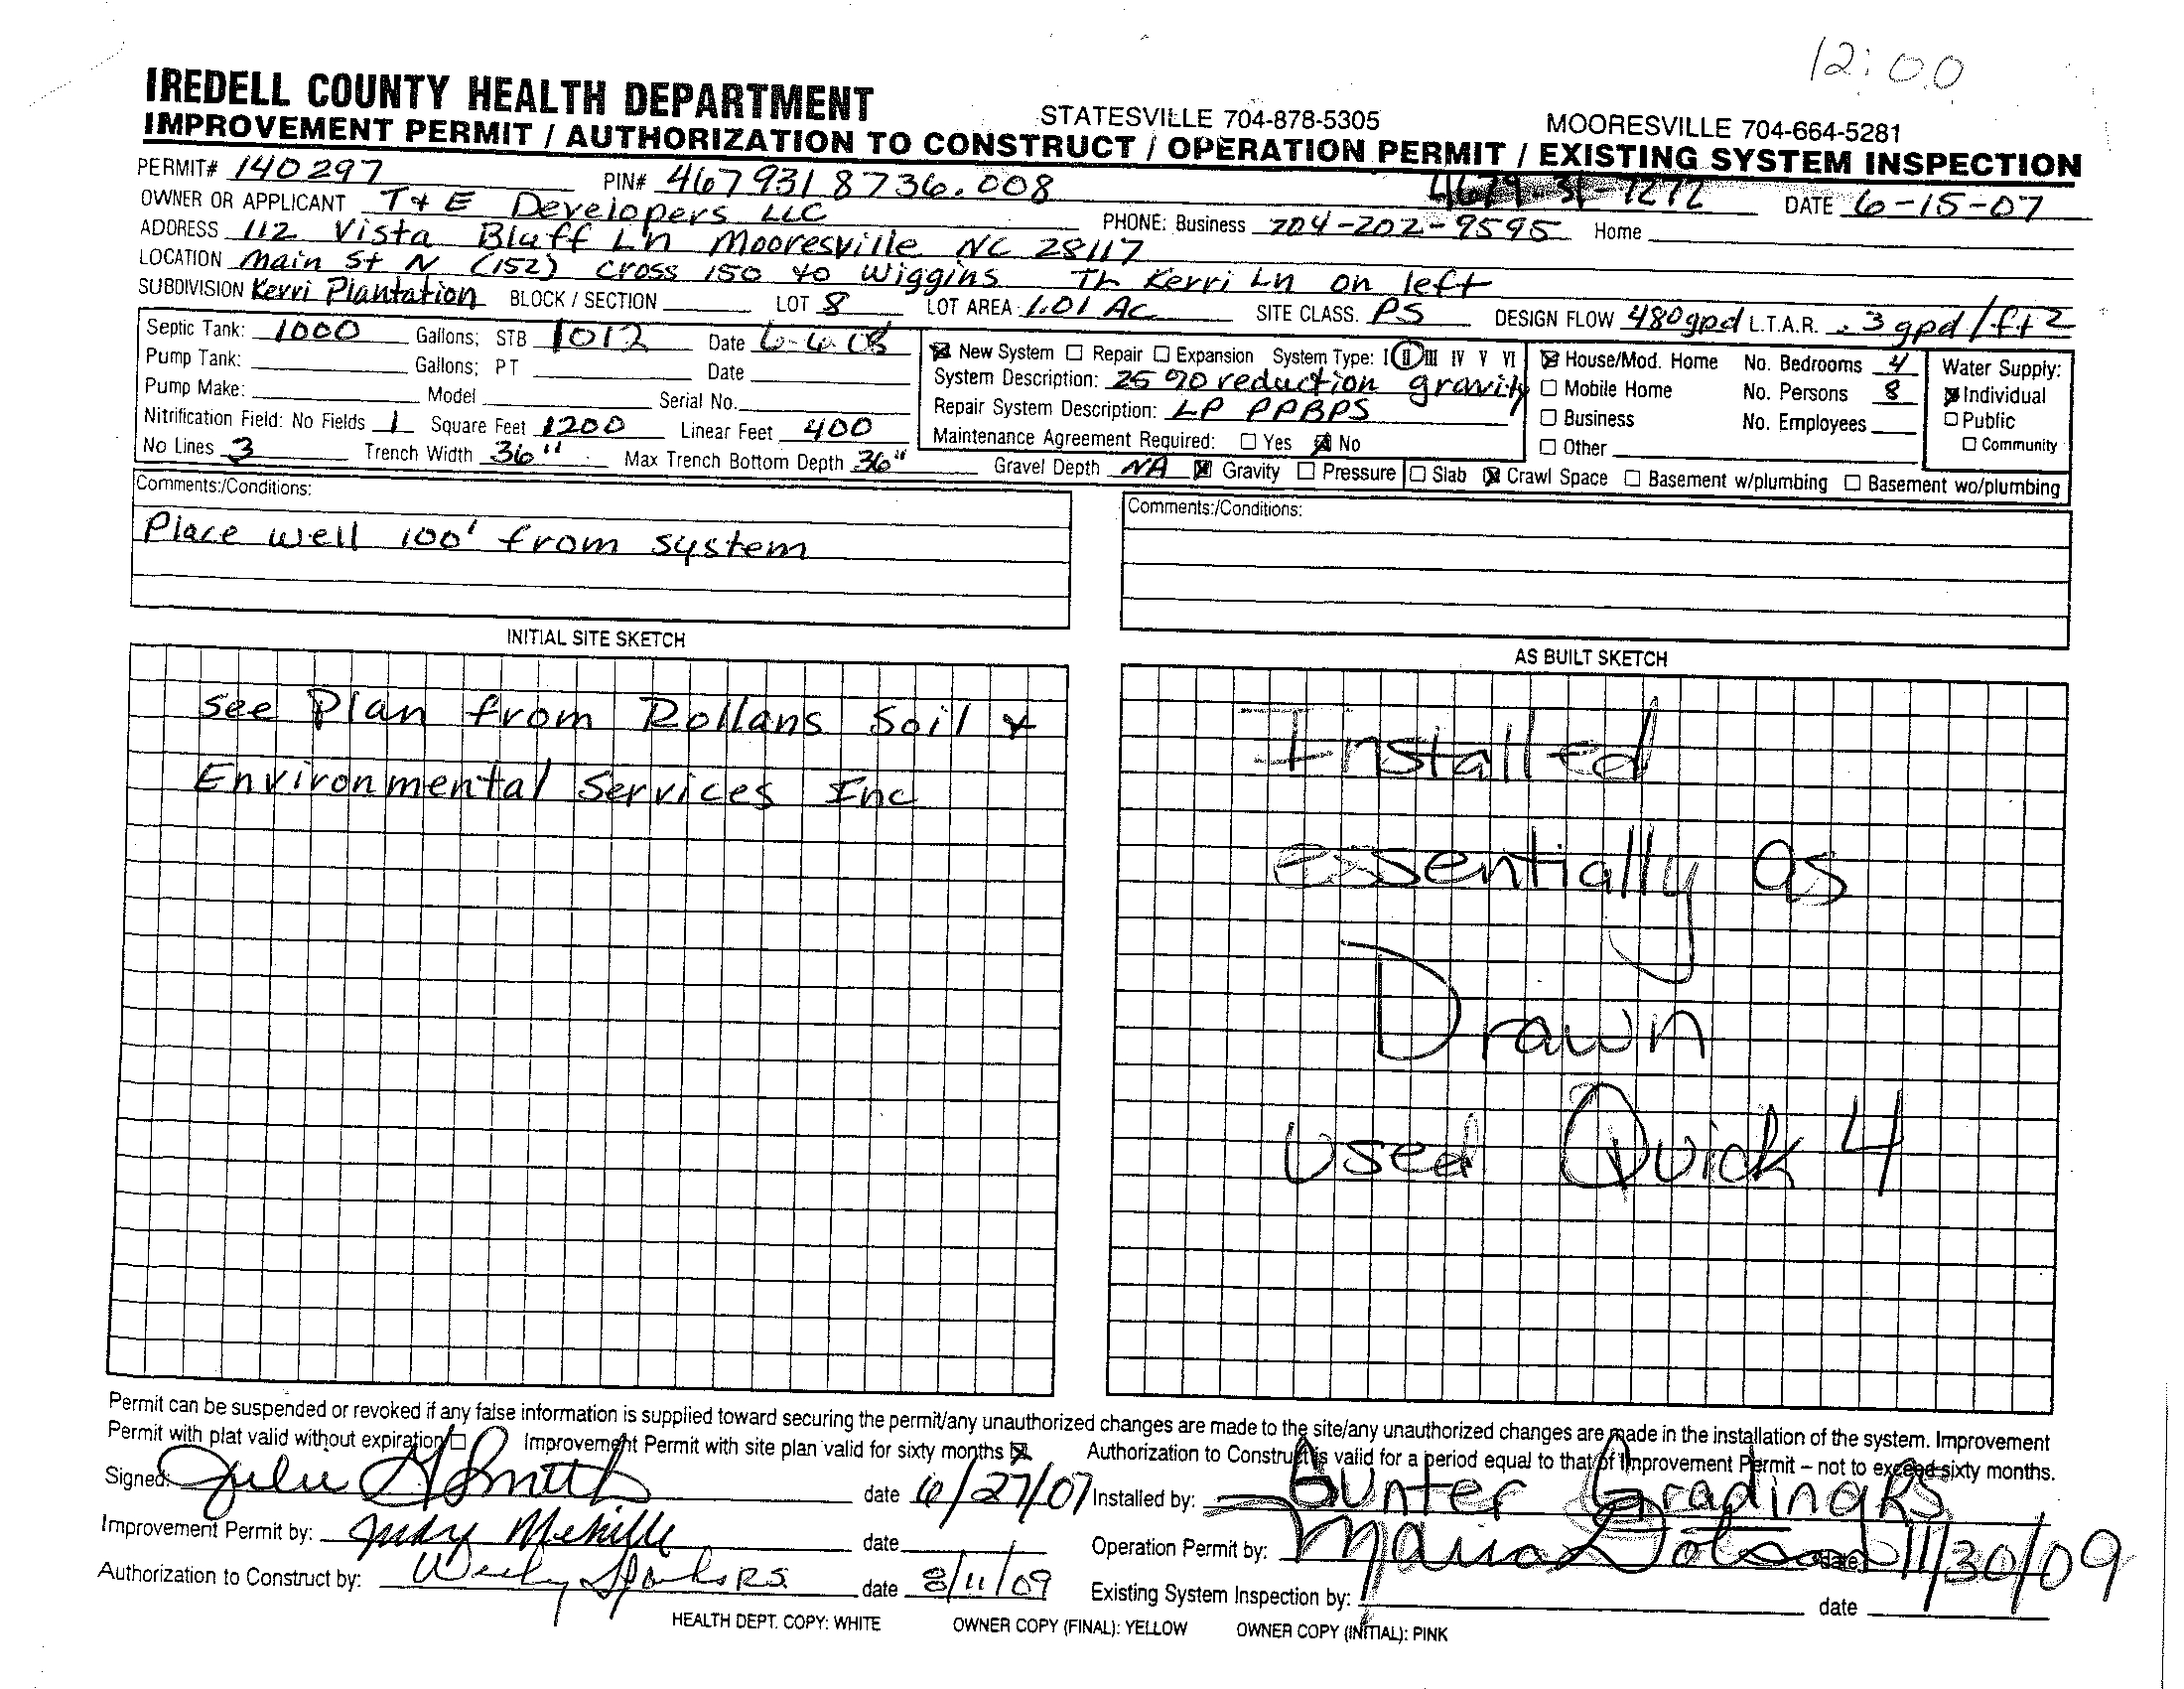 12:00
IREDELL COUNTY HEALTH DEPARTMENT STATESVILLE 704-878-5305 MOORESVILLE 704-664-5281
IMPROVEMENT PERMIT / AUTHORIZATION TO CONSTRUCT / OPERATION PERMIT / EXISTING SYSTEM INSPECTION
PERMIT# 140297 PIN# 4679318736.008 4679-31-7272 DATE 6-15-07
OWNER OR APPLICANT T & E Developers LLC PHONE: Business 704-202-9595 Home
ADDRESS 112 Vista Bluff Ln Mooresville NC 28117
LOCATION Main St N (152) cross 150 to Wiggins Th Kerri Ln on left
SUBDIVISION Kerri Plantation BLOCK / SECTION LOT 8 LOT AREA 1.01 AC SITE CLASS. PS DESIGN FLOW 480gpd L.T.A.R. .3 gpd/ft2
Septic Tank: 1000 Gallons; STB 1012 Date 6-4-08
Pump Tank: Gallons; PT Date
Pump Make: Model Serial No.
Nitrification Field: No Fields 1 Square Feet 1200 Linear Feet 400
No Lines 3 Trench Width 36" Max Trench Bottom Depth 36" Gravel Depth NA Gravity Pressure Slab Crawl Space Basement w/plumbing Basement wo/plumbing
New System Repair Expansion System Type: I II III IV V VI
System Description: 25% reduction gravity
Repair System Description: LP PPBPS
Maintenance Agreement Required: Yes No
House/Mod. Home No. Bedrooms 4
Mobile Home No. Persons 8
Business No. Employees
Other
Water Supply:
Individual
Public
Community
Comments:/Conditions:
Place well 100' from system
Comments:/Conditions:
INITIAL SITE SKETCH
See Plan from Rollans Soil &
Environmental Services Inc
AS BUILT SKETCH
Installed
essentially as
Drawn
used Quick 4
Permit can be suspended or revoked if any false information is supplied toward securing the permit/any unauthorized changes are made to the site/any unauthorized changes are made in the installation of the system. Improvement
Permit with plat valid without expiration Improvement Permit with site plan valid for sixty months Authorization to Construct is valid for a period equal to that of Improvement Permit – not to exceed sixty months.
Signed: Julie A Smith date 6/27/07 Installed by: Gunter Grading RS
Improvement Permit by: Judy date Operation Permit by: Maria Dotson date 11/30/09
Authorization to Construct by: Wesley Sparks R.S. date 8/11/09 Existing System Inspection by: date
HEALTH DEPT. COPY: WHITE OWNER COPY (FINAL): YELLOW OWNER COPY (INITIAL): PINK